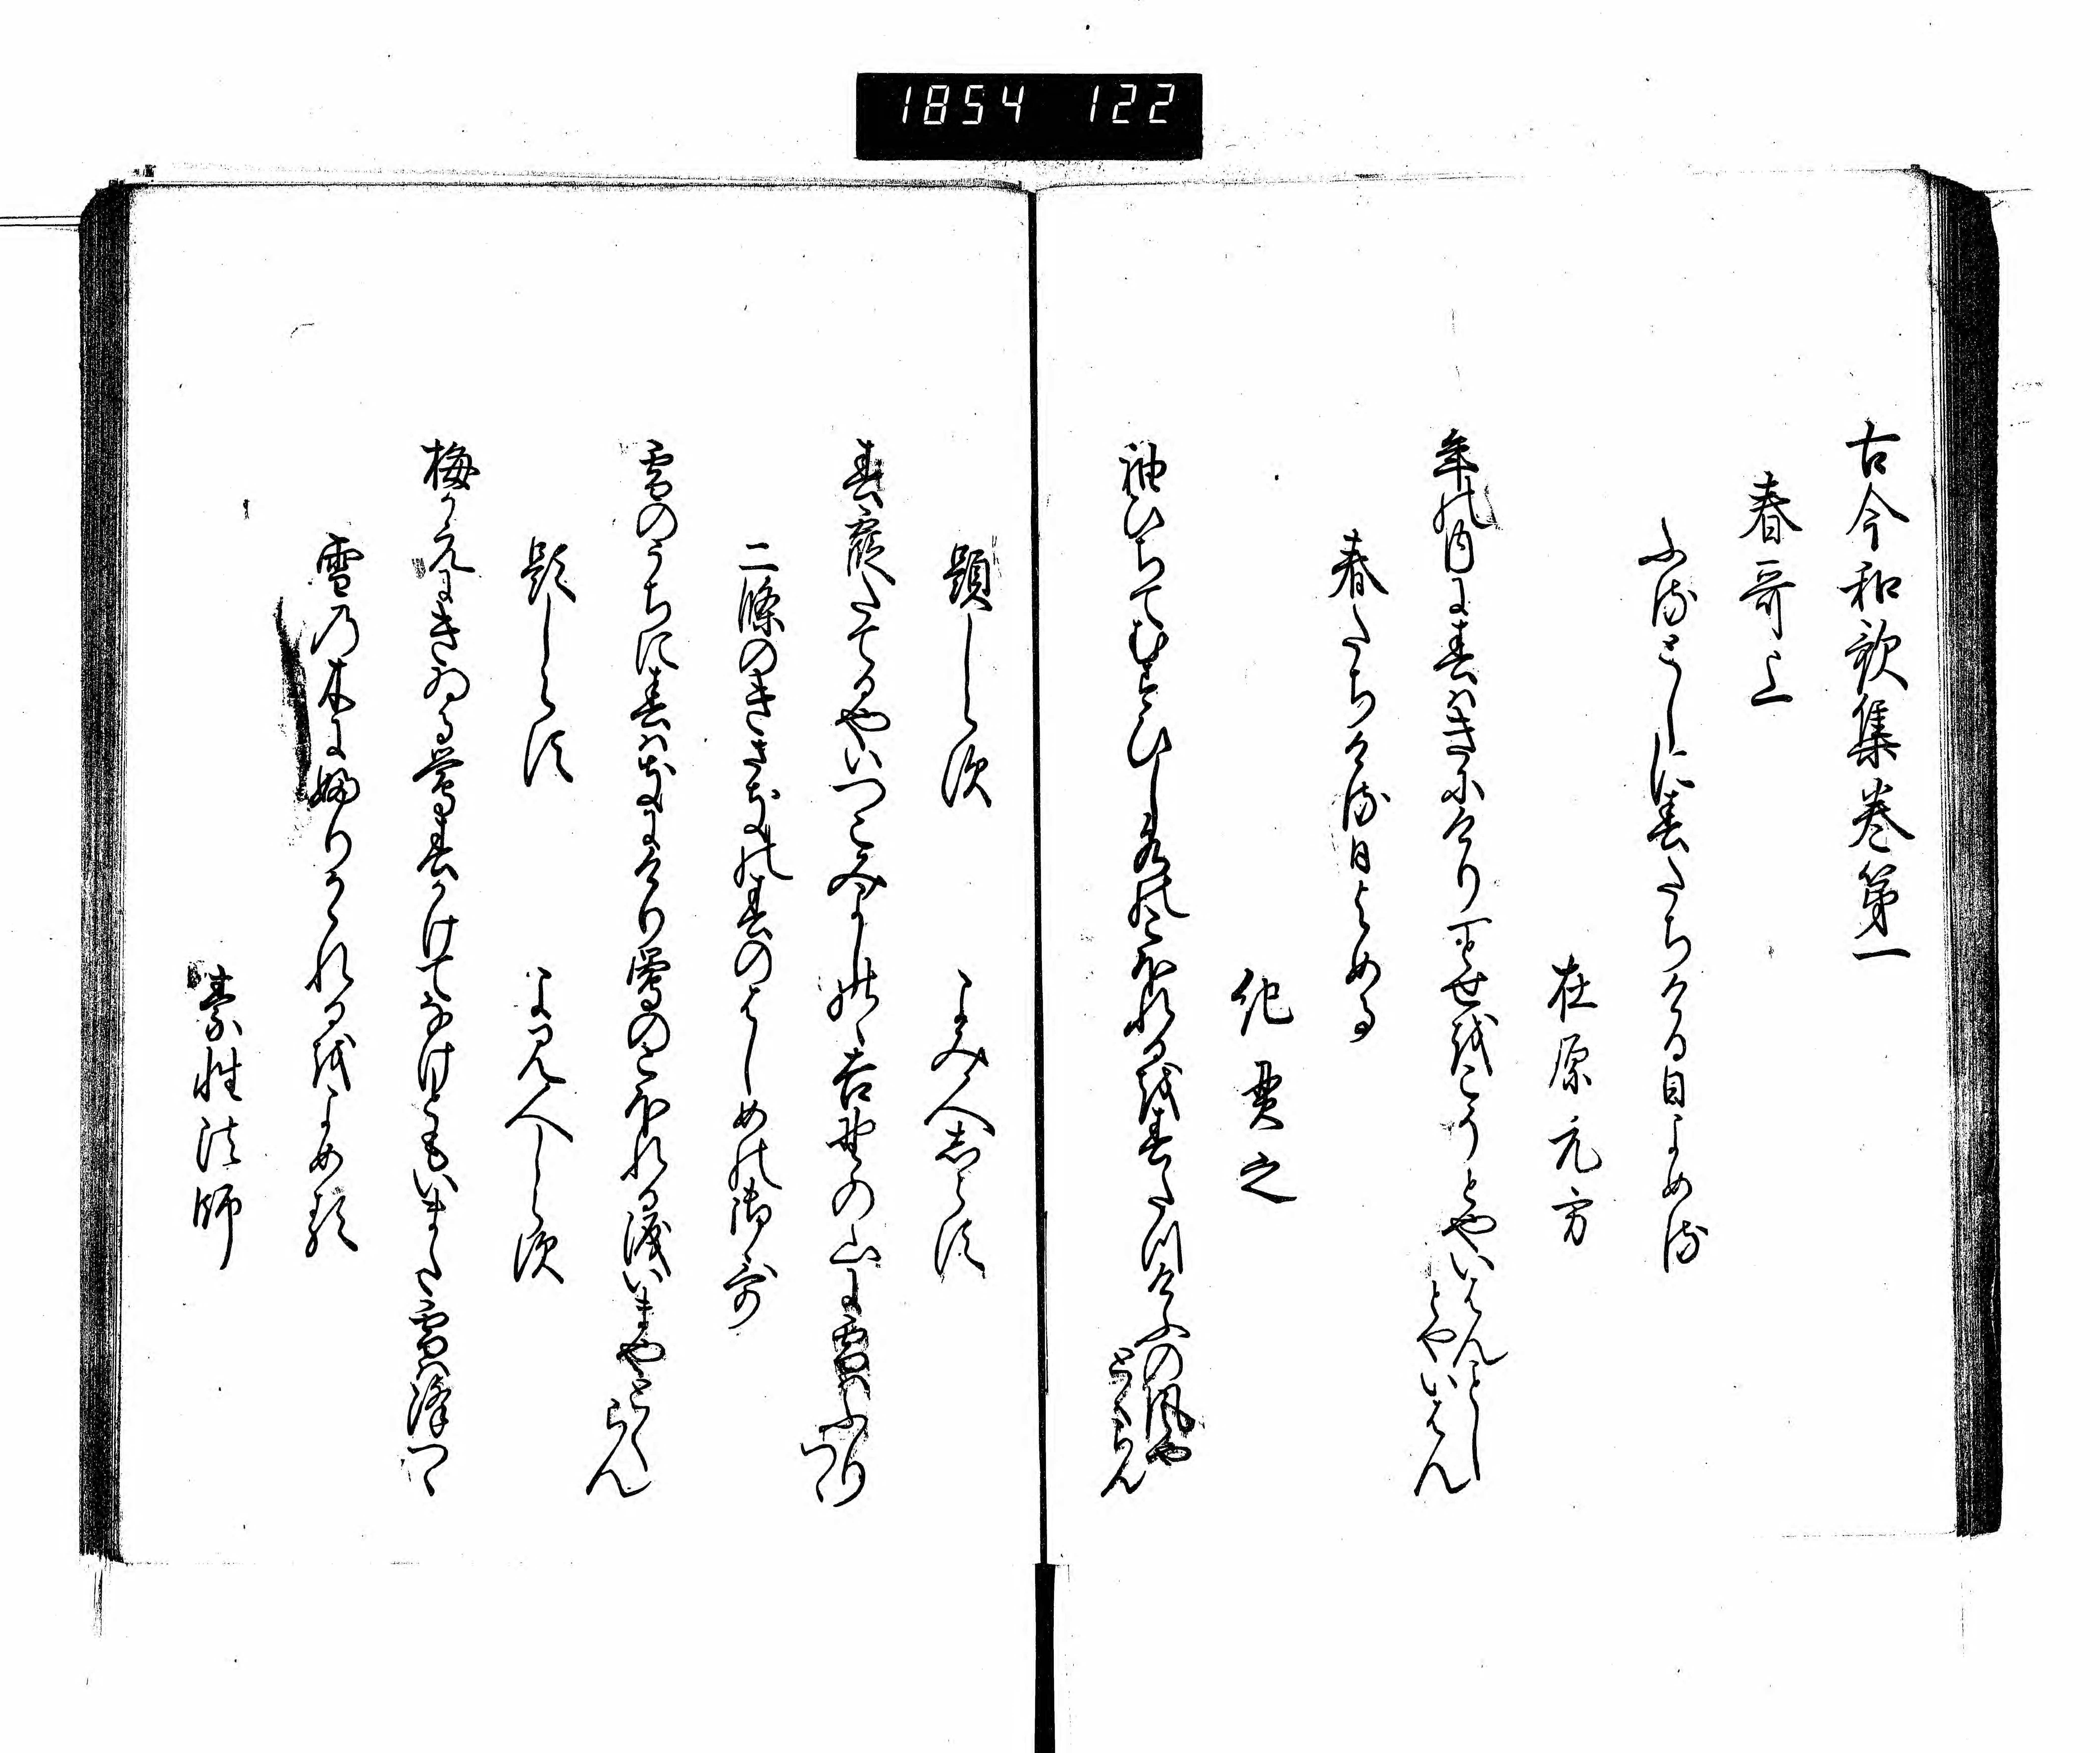 1854 122
古今和歌集巻第一
春哥上
ふるとしに春たちける日よめる
在原元方
年の内に春はきにけり一とせをこそとやいはんことし
とやいはん
春たちける日よめる
紀貫之
袖ひちてむすひし水のこほれるを春たつけふの風や
とくらん
題しらす
よみ人しらす
春霞たてるやいつこみよしのゝ吉野の山に雪はふり
つゝ
二條のきさきの春のはしめの御哥
雪のうちに春はきにけり鶯のこほれる涙いまやとく
らん
題しらす
よみ人しらす
梅かえにきゐる鶯春かけてなけともいまた雪は降つゝ
雪の木にふりかゝれるをよめる
素性法師